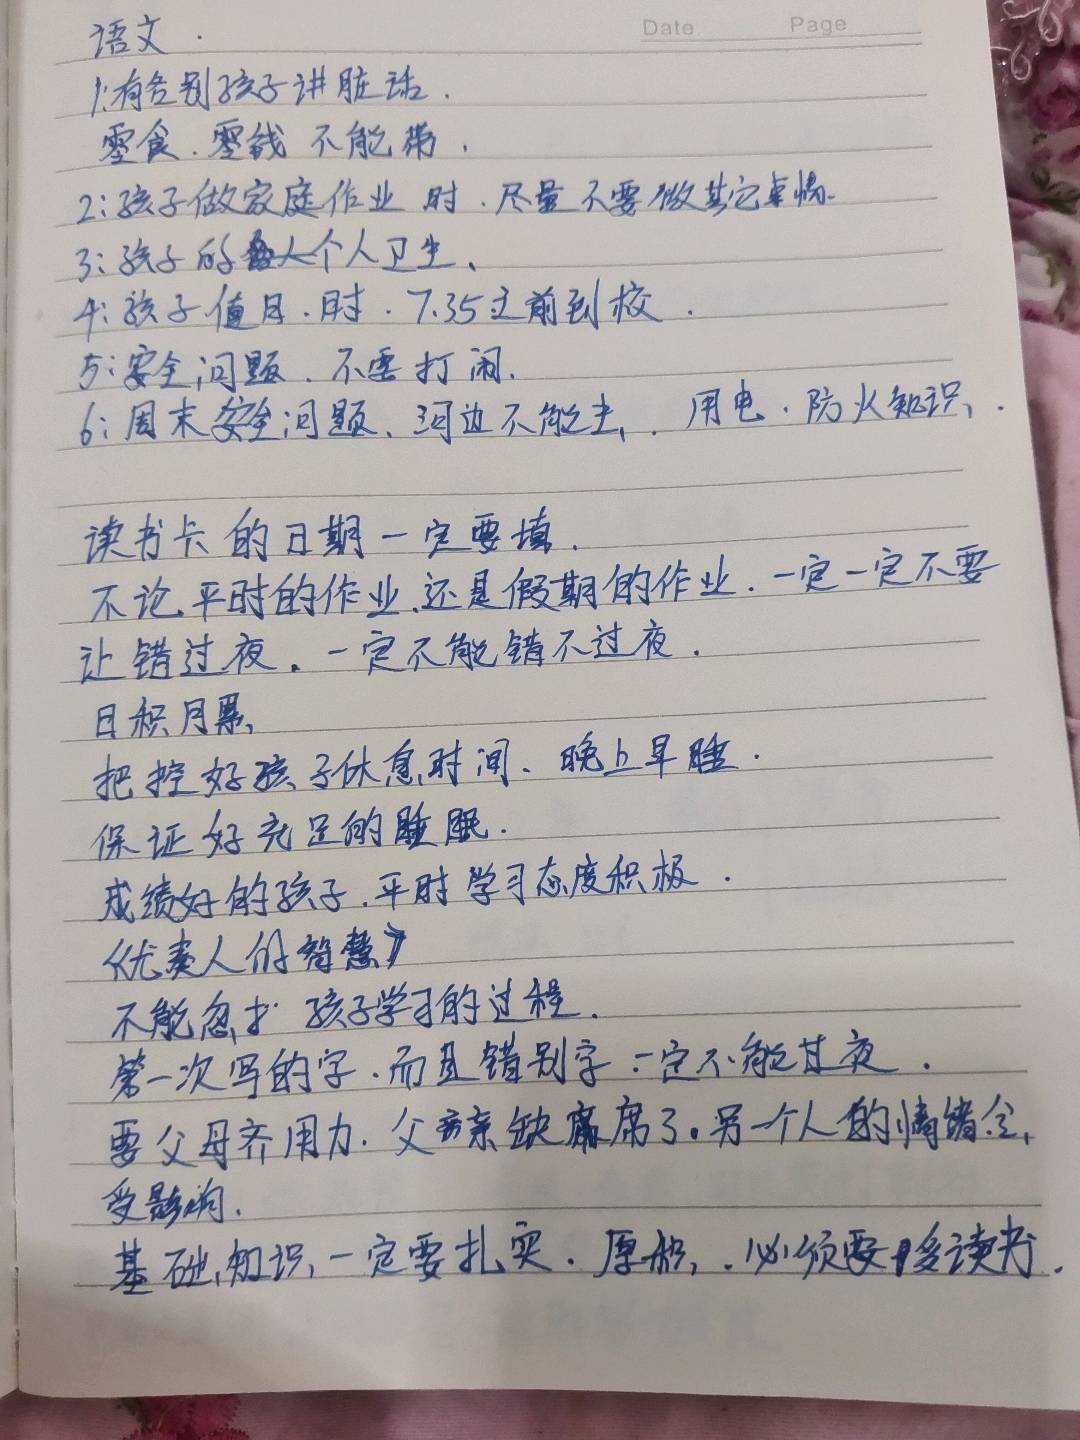 Date Page
语文.
1:有各别孩子讲脏话.
零食.零钱不能带.
2:孩子做家庭作业时.尽量不要做其它事情.
3:孩子的个人卫生、
4:孩子值日.时.7.35之前到校.
5:安全问题.不要打闹.
6:周末安全问题、河边不能去,.用电.防火知识,.
读书卡的日期一定要填.
不论.平时的作业.还是假期的作业.一定一定不要
让错过夜.一定不能错不过夜.
日积月累,
把控好孩子休息时间、晚上早睡.
保证好充足的睡眠.
成绩好的孩子.平时学习态度积极.
《优秀人的智慧》
不能忽扌孩子学习的过程.
第一次写的字.而且错别字一定不能过夜.
要父母齐用力.父亲缺席了。另一个人的情绪会,
受影响.
基础,知识,一定要扎实.厚积,.必须要多读书.